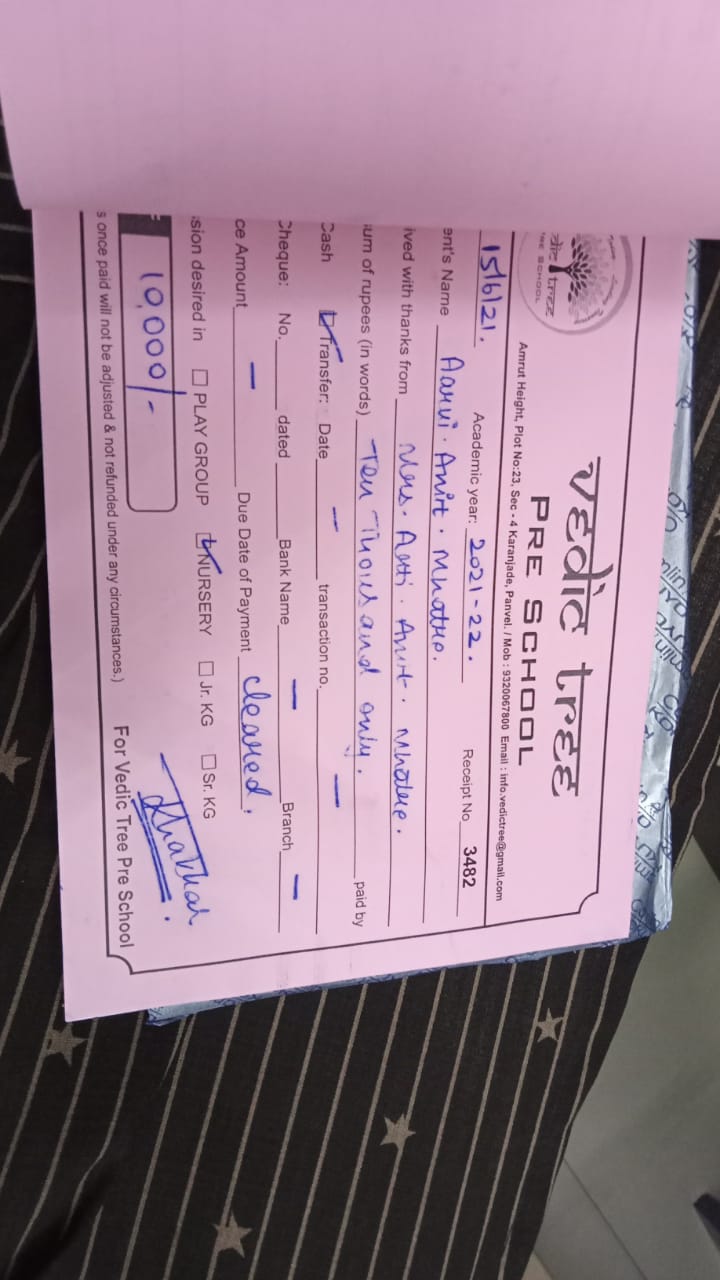 vedic tree
PRE SCHOOL
Amrut Height, Plot No:23, Sec - 4 Karanjade, Panvel. / Mob : 9320067800 Email : info.vedictree@gmail.com
15/6/21. Academic year: 2021-22. Receipt No 3482
ent's Name Aarvi. Anirt. Mhatre.
ived with thanks from Mrs. Aarti. Anirt. Mhatre.
um of rupees (in words) Ten Thousand only. paid by
Cash Transfer: Date — transaction no. —
Cheque: No. dated Bank Name — Branch —
ce Amount — Due Date of Payment cleared.
sion desired in PLAY GROUP NURSERY Jr. KG Sr. KG
10,000/-
For Vedic Tree Pre School
s once paid will not be adjusted & not refunded under any circumstances.)